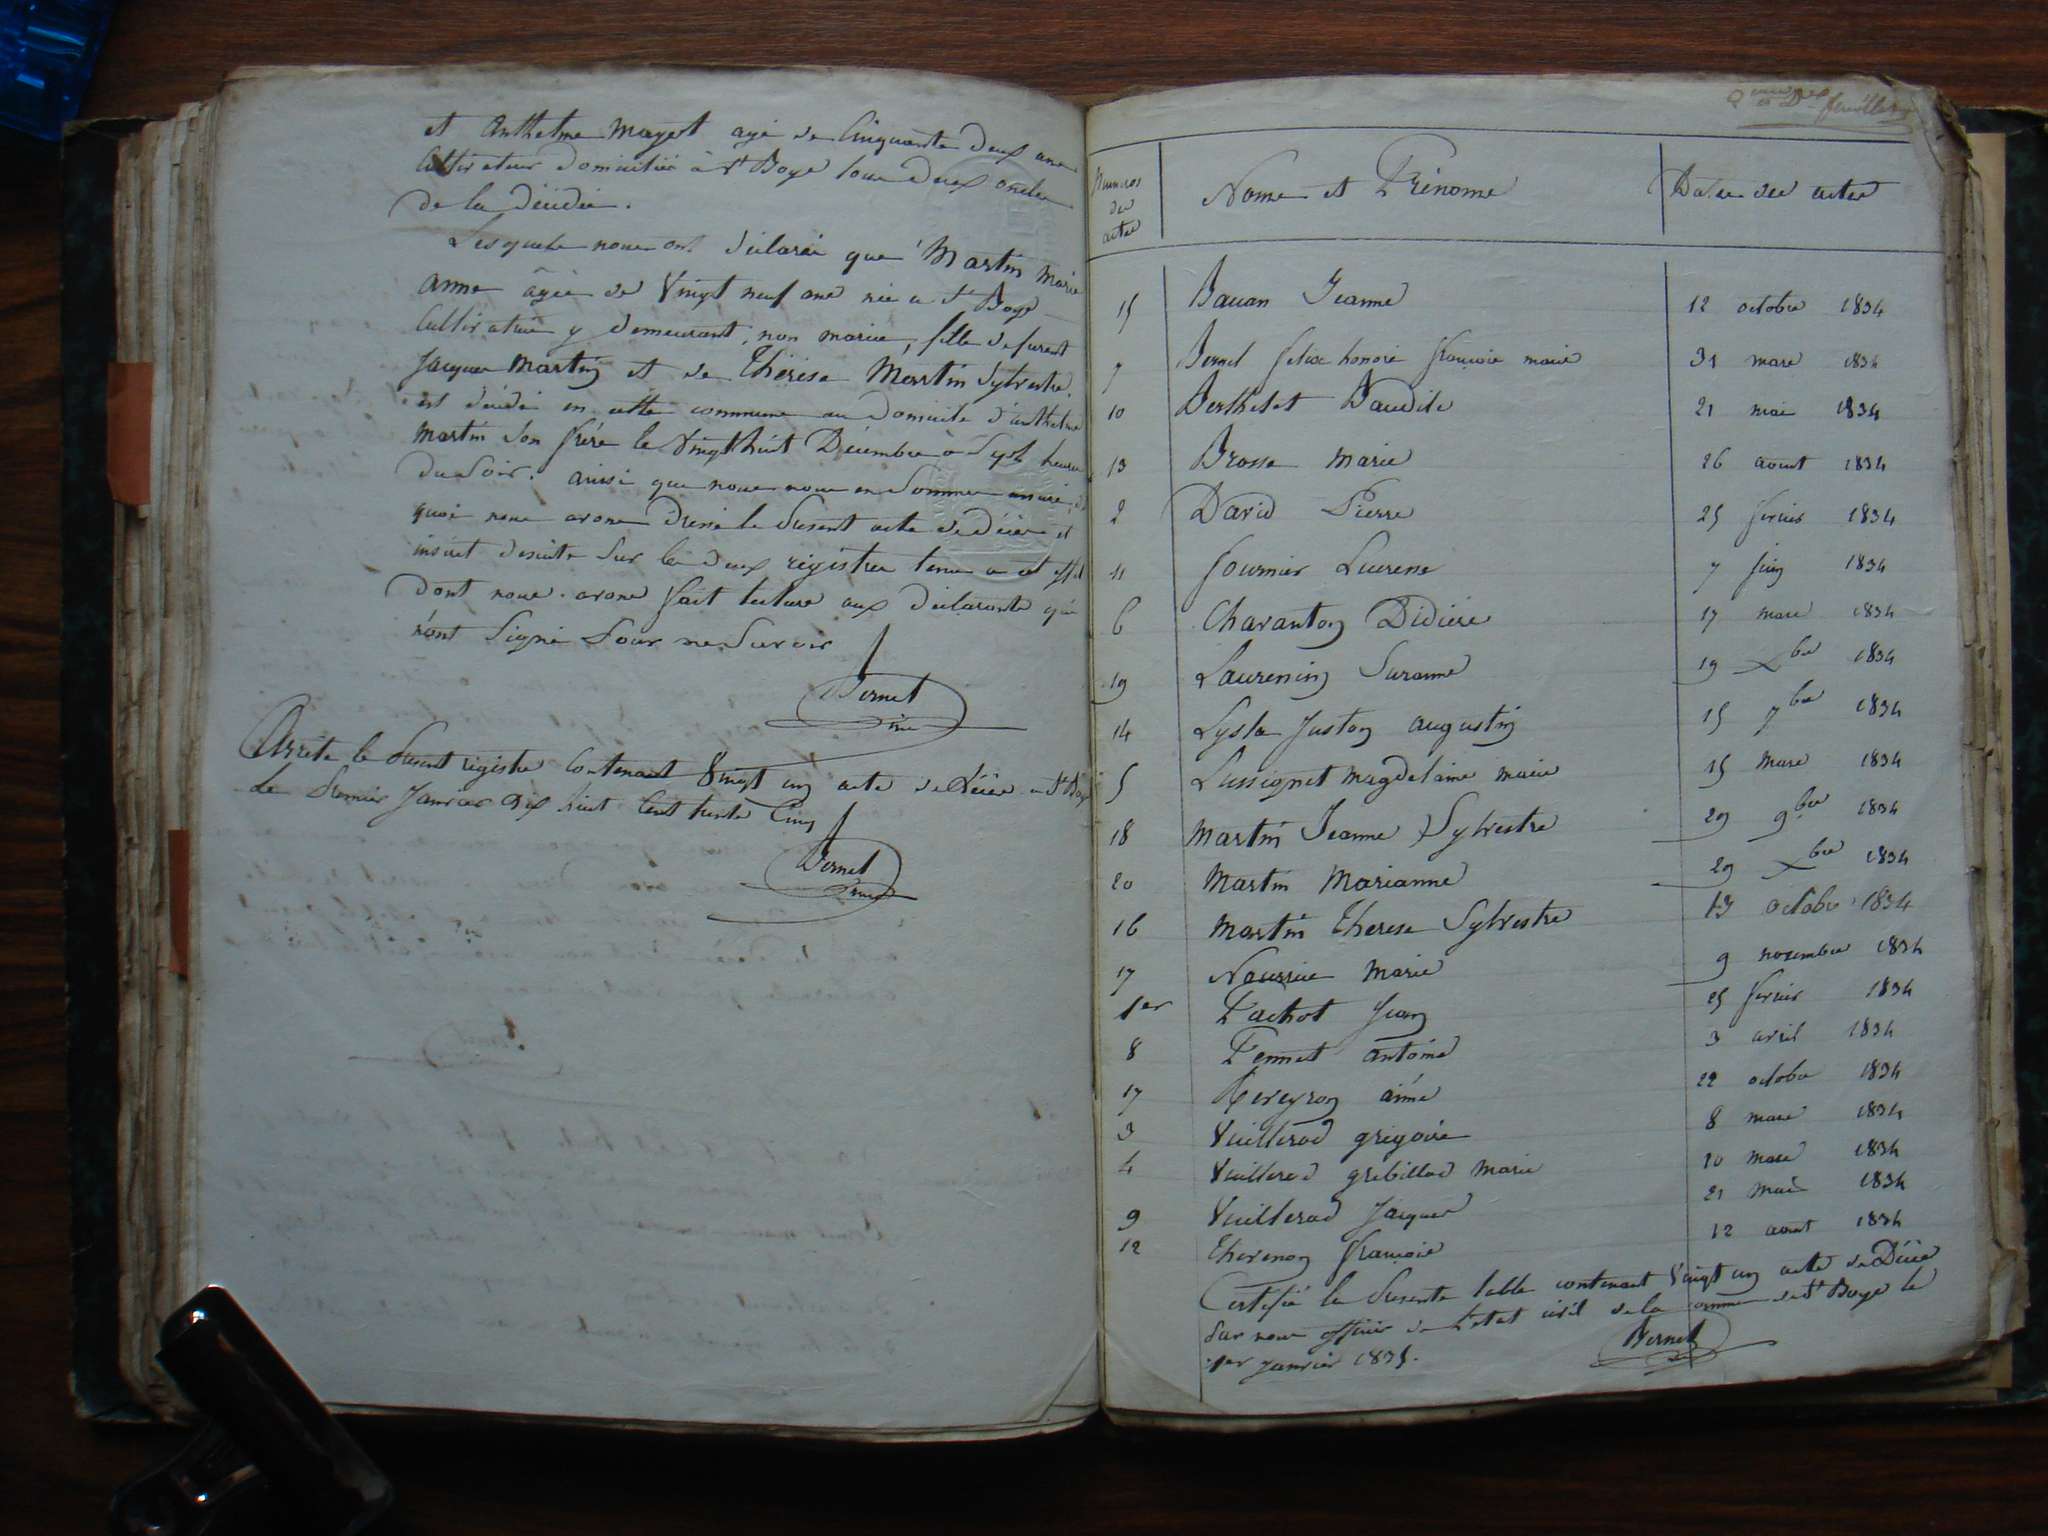 et Anthelme Mayet agé de Cinquante Deux ans
Cultivateur Domicilié à St Boys tous Deux oncles
de la Décédée.
Lesquels nous ont Déclaré que Martin Marie
Anne âgée de Vingt neuf ans née a St Boys
Cultivatrice y demeurant, non mariée, fille de furent
Jacques Martin et de Thérèse Martin Sylvestre
est décédé en cette commune au Domicile d'anthelme
Martin son frère le Vingt huit Décembre a Sept heures
Du Soir. ainsi que nous nous en Sommes assuré, de
quoi nous avons Dressé le Présent acte de Décès et
inscrit desuite Sur les Deux registres tenus a cet effet
dont nous avons fait lecture aux Déclarants qui
n'ont Signé Pour ne Savoir
Bernet
Arrêté le Présent registre Contenant Vingt un acte de Décès a St Boys
Le Premier Janvier Dix huit Cent trente Cinq
Bernet
feuillets
Numeros des actes Noms et Prénoms Dates des actes
15 Bavan Jeanne 12 octobre 1834
7 Bernet felix honoré françois marie 31 mars 1834
10 Berthelet Baudile 21 mai 1834
13 Brosse Marie 26 aout 1834
2 David Pierre 25 fevrier 1834
11 fournier Lucresse 7 juin 1834
6 Charanton Didière 17 mars 1834
19 Laurencin Suzanne 19 Xbre 1834
14 Justin augustin 15 7bre 1834
5 Lussignet Magdelaine marie 15 Mars 1834
18 Martin Jeanne Sylvestre 29 9bre 1834
20 Martin Marianne 29 Xbre 1834
16 Martin Therese Sylvestre 13 octobre 1834
17 Nourrice Marie 9 novembre 1834
1er Pachot Jean 25 fevrier 1834
8 Pennet antoine 3 avril 1834
17 Pereyron aimé 22 octobre 1834
3 Vuillerod grégoire 8 mars 1834
4 Vuillerod gribillod Marie 10 mars 1834
9 Vuillerod Jacques 21 mai 1834
12 Thevenon françoise 12 aout 1834
Certifié la Presente table contenant Vingt un acte de Décès
Par nous officier de L'etat civil de la commune de St Boys le
1er Janvier 1835.
Bernet